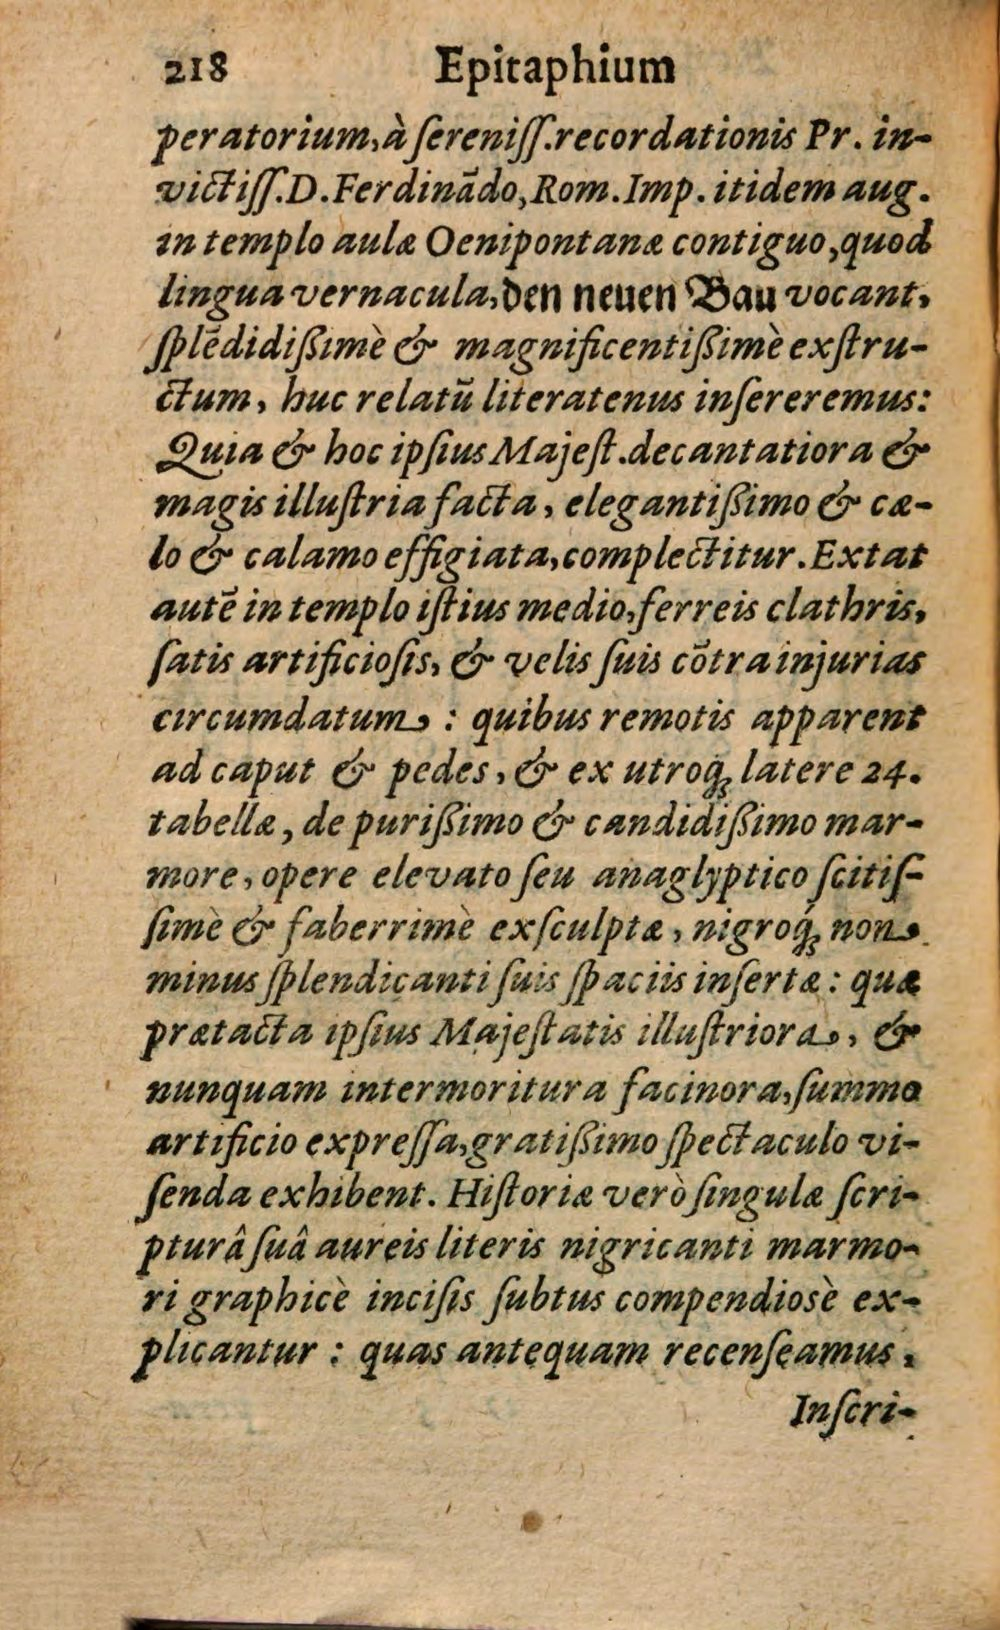 218 Epitaphium
peratorium, à ſereniſſ. recordationis Pr. in-
victiſſ. D. Ferdinãdo, Rom. Imp. itidem aug.
in templo aulæ Oenipontanæ contiguo, quod
lingua vernacula, den neuen Bau vocant,
ſplẽdidißimè & magnificentißimè exſtru-
ctum, huc relatũ literatenus inſereremus:
Quia & hoc ipſius Majeſt. decantatiora &
magis illuſtria facta, elegantißimo & cæ-
lo & calamo effigiata, complectitur. Extat
autẽ in templo iſtius medio, ferreis clathris,
ſatis artificioſis, & velis ſuis cõtra injurias
circumdatum : quibus remotis apparent
ad caput & pedes, & ex utroq́ꝫ latere 24.
tabellæ, de purißimo & candidißimo mar-
more, opere elevato ſeu anaglyptico ſcitiſ-
ſimè & faberrimè exſculptæ, nigroq́ꝫ non
minus ſplendicanti ſuis ſpaciis inſertæ : quæ
prætacta ipſius Majeſtatis illuſtriora, &
nunquam intermoritura facinora, ſummo
artificio expreſſa, gratißimo ſpectaculo vi-
ſenda exhibent. Hiſtoriæ verò ſingulæ ſcri-
pturâ ſuâ aureis literis nigricanti marmo-
ri graphicè inciſis ſubtus compendiosè ex-
plicantur : quas antequam recenſeamus,
Inſcri-